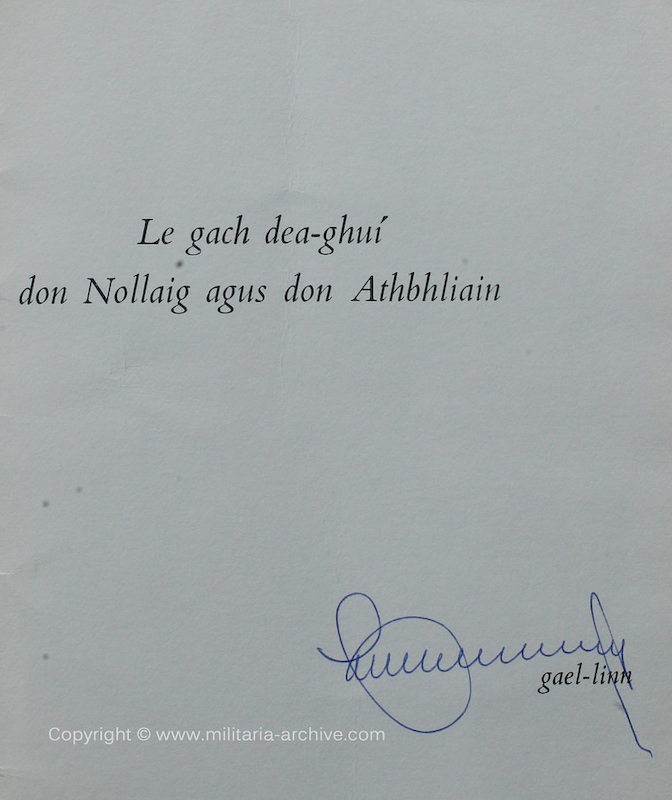 Le gach dea-ghuí
don Nollaig agus don Athbhliain
gael-linn
Copyright © www.militaria-archive.com